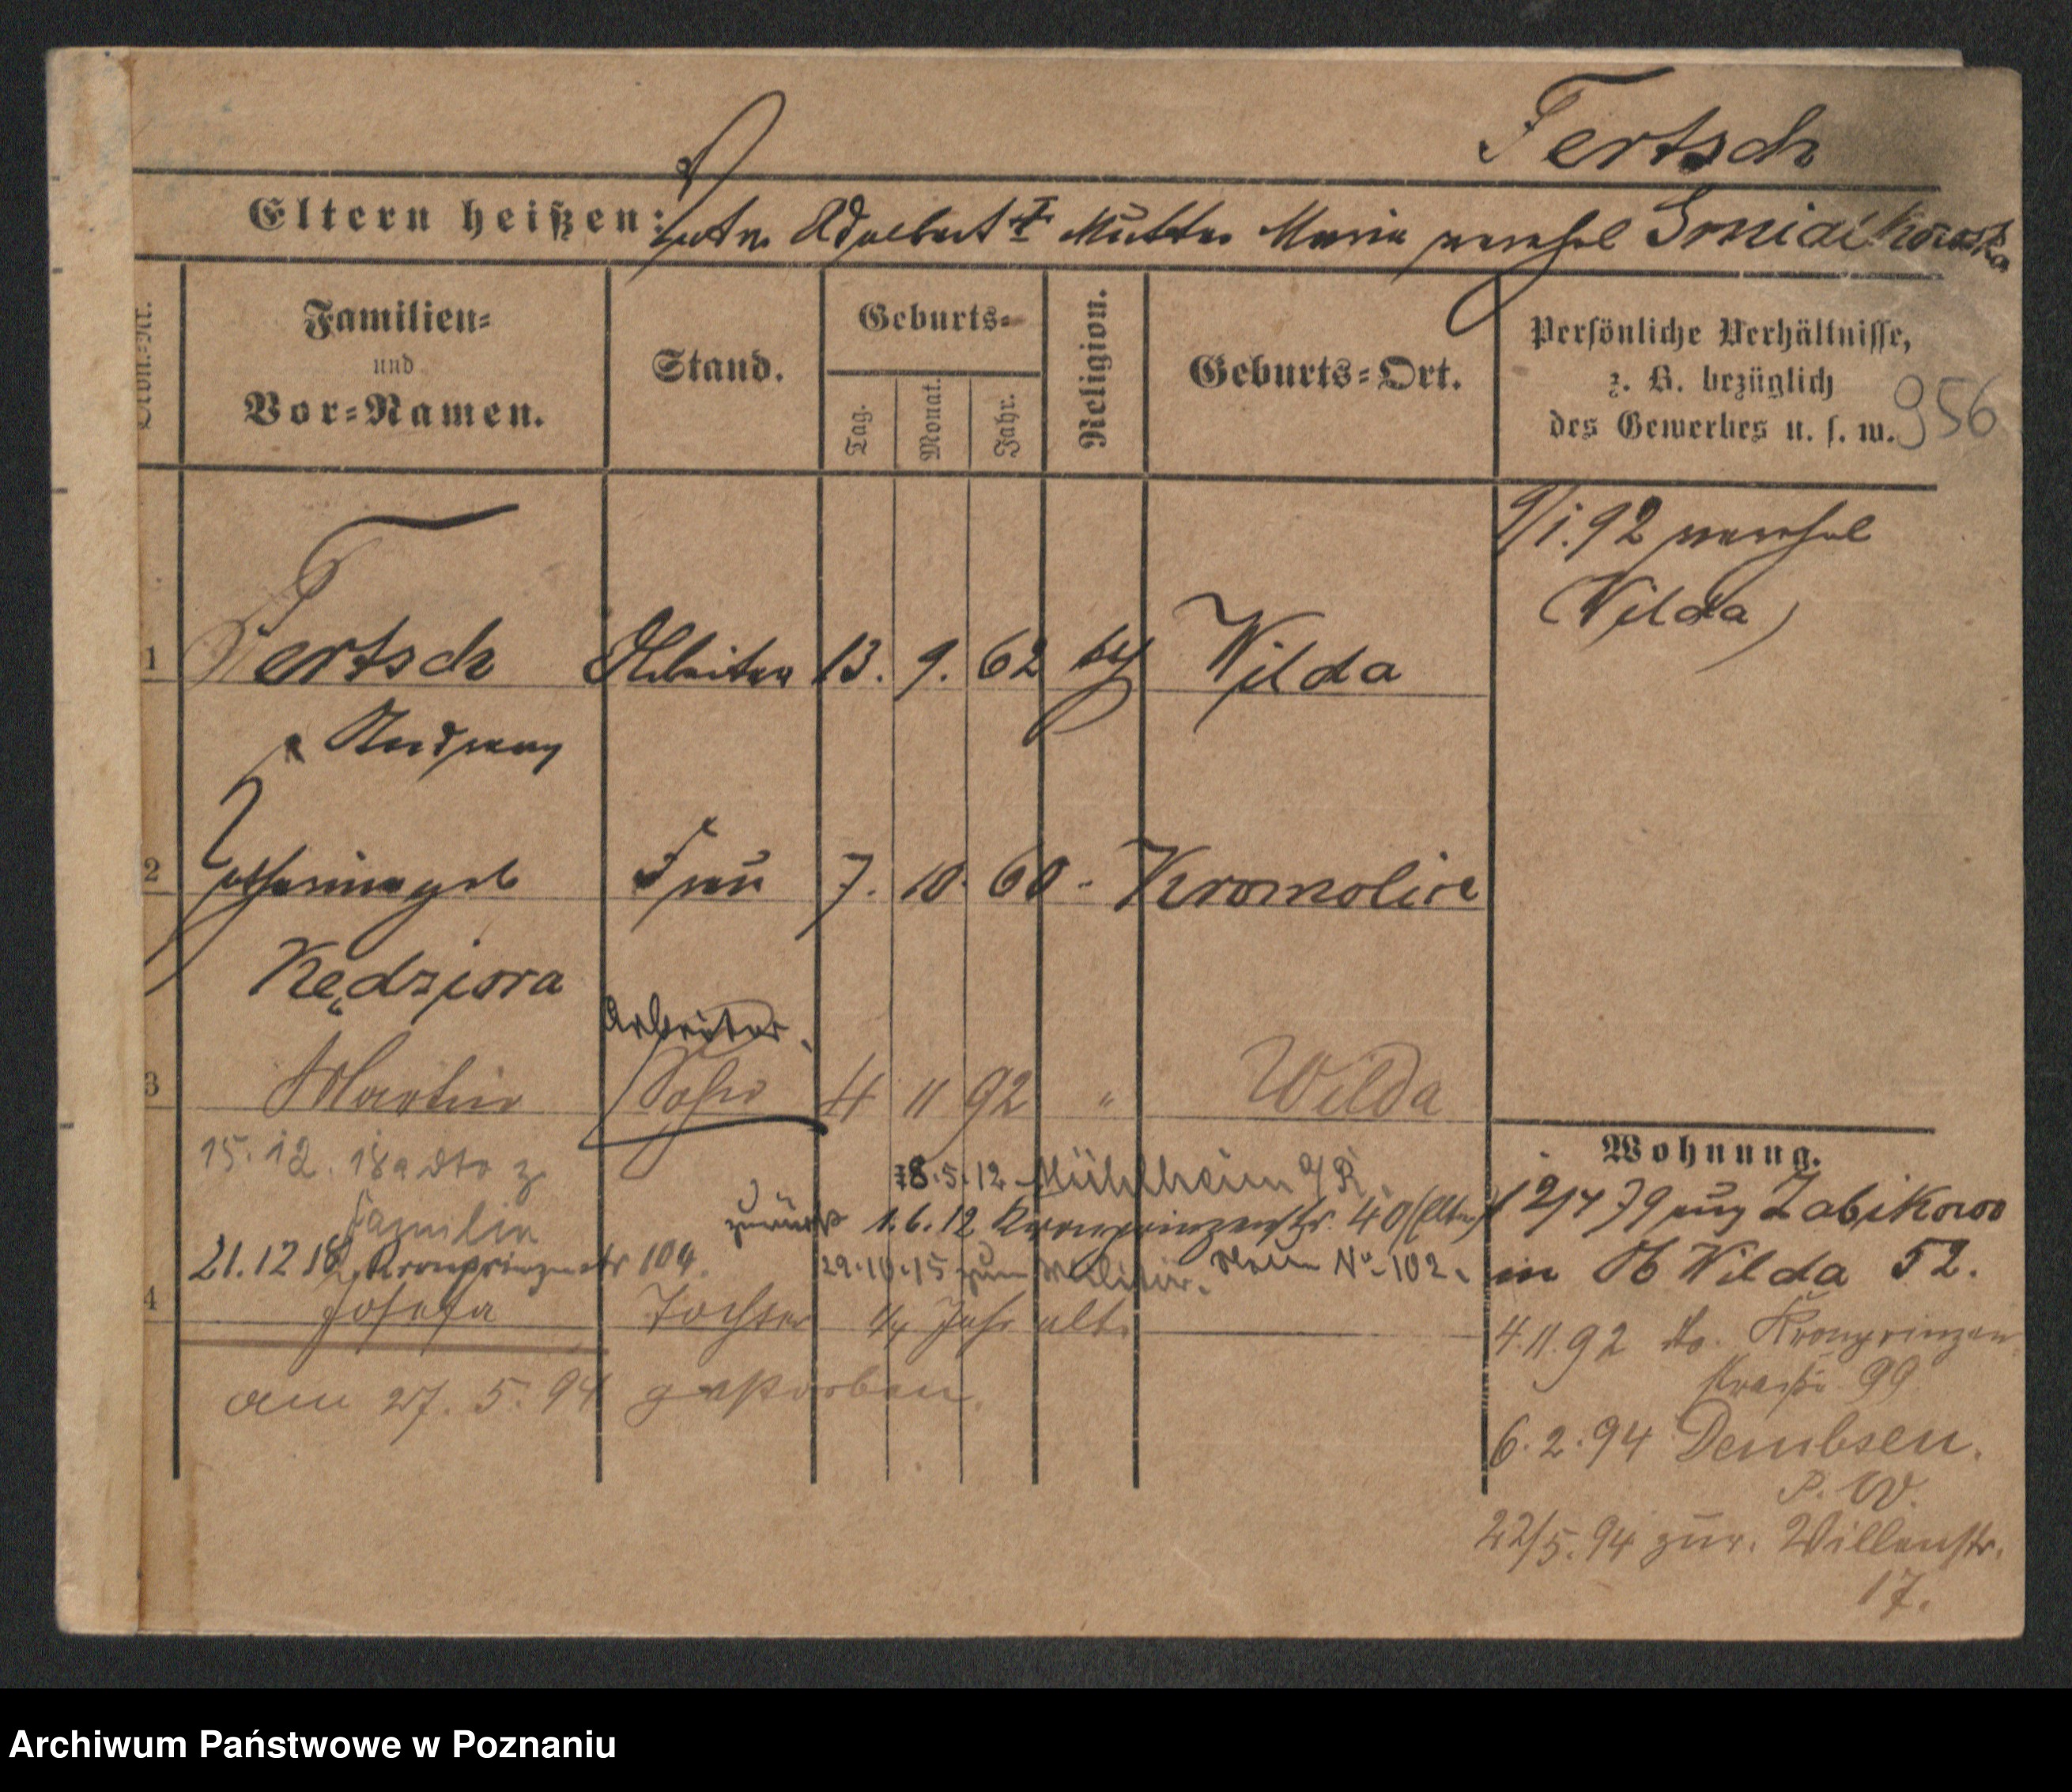 Fertsch
Eltern heißen: Vater Adalbert † Mutter Maria
Familien= und Vor=Namen.
Stand.
Geburts=
Tag.
Monat.
Jahr.
Religion.
Geburts=Ort.
Persönliche Verhältnisse,
z. B. bezüglich
des Gewerbes u. s. w.
956
9/1.92
(Wilda)
1 Fertsch Arbeiter 13. 9. 62 Wilda
Andreas
2 Frau 7. 10. 60 Kromolice
Kędziora
Arbeiter.
3 Martin Sohn 4 11 92 " Wilda
15.12.18
Familie
8.5.12 Mühlheim a/R.
zurück 1.6.12 Kronprinzenstr. 40 (Eltern)
21.12.18 Kronprinzenstr 104.
29.10.15 zum Militär. Neue No 102.
4 Josefa Tochter 1/4 Jahr alt.
am 27. 5. 94 gestorben.
Wohnung.
aus Zabikowo
in Ob Wilda 52.
4.11.92 do. Kronprinzen
straße 99
6.2.94 Dembsen.
P. W.
22/5.94 zur. Villenstr.
17.
Archiwum Państwowe w Poznaniu